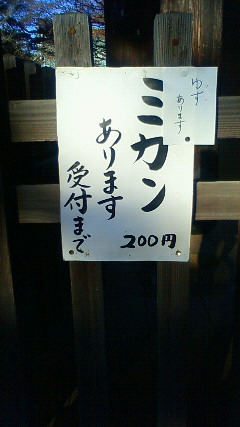 ゆず
あります
ミカン
あります
受付まで
200円